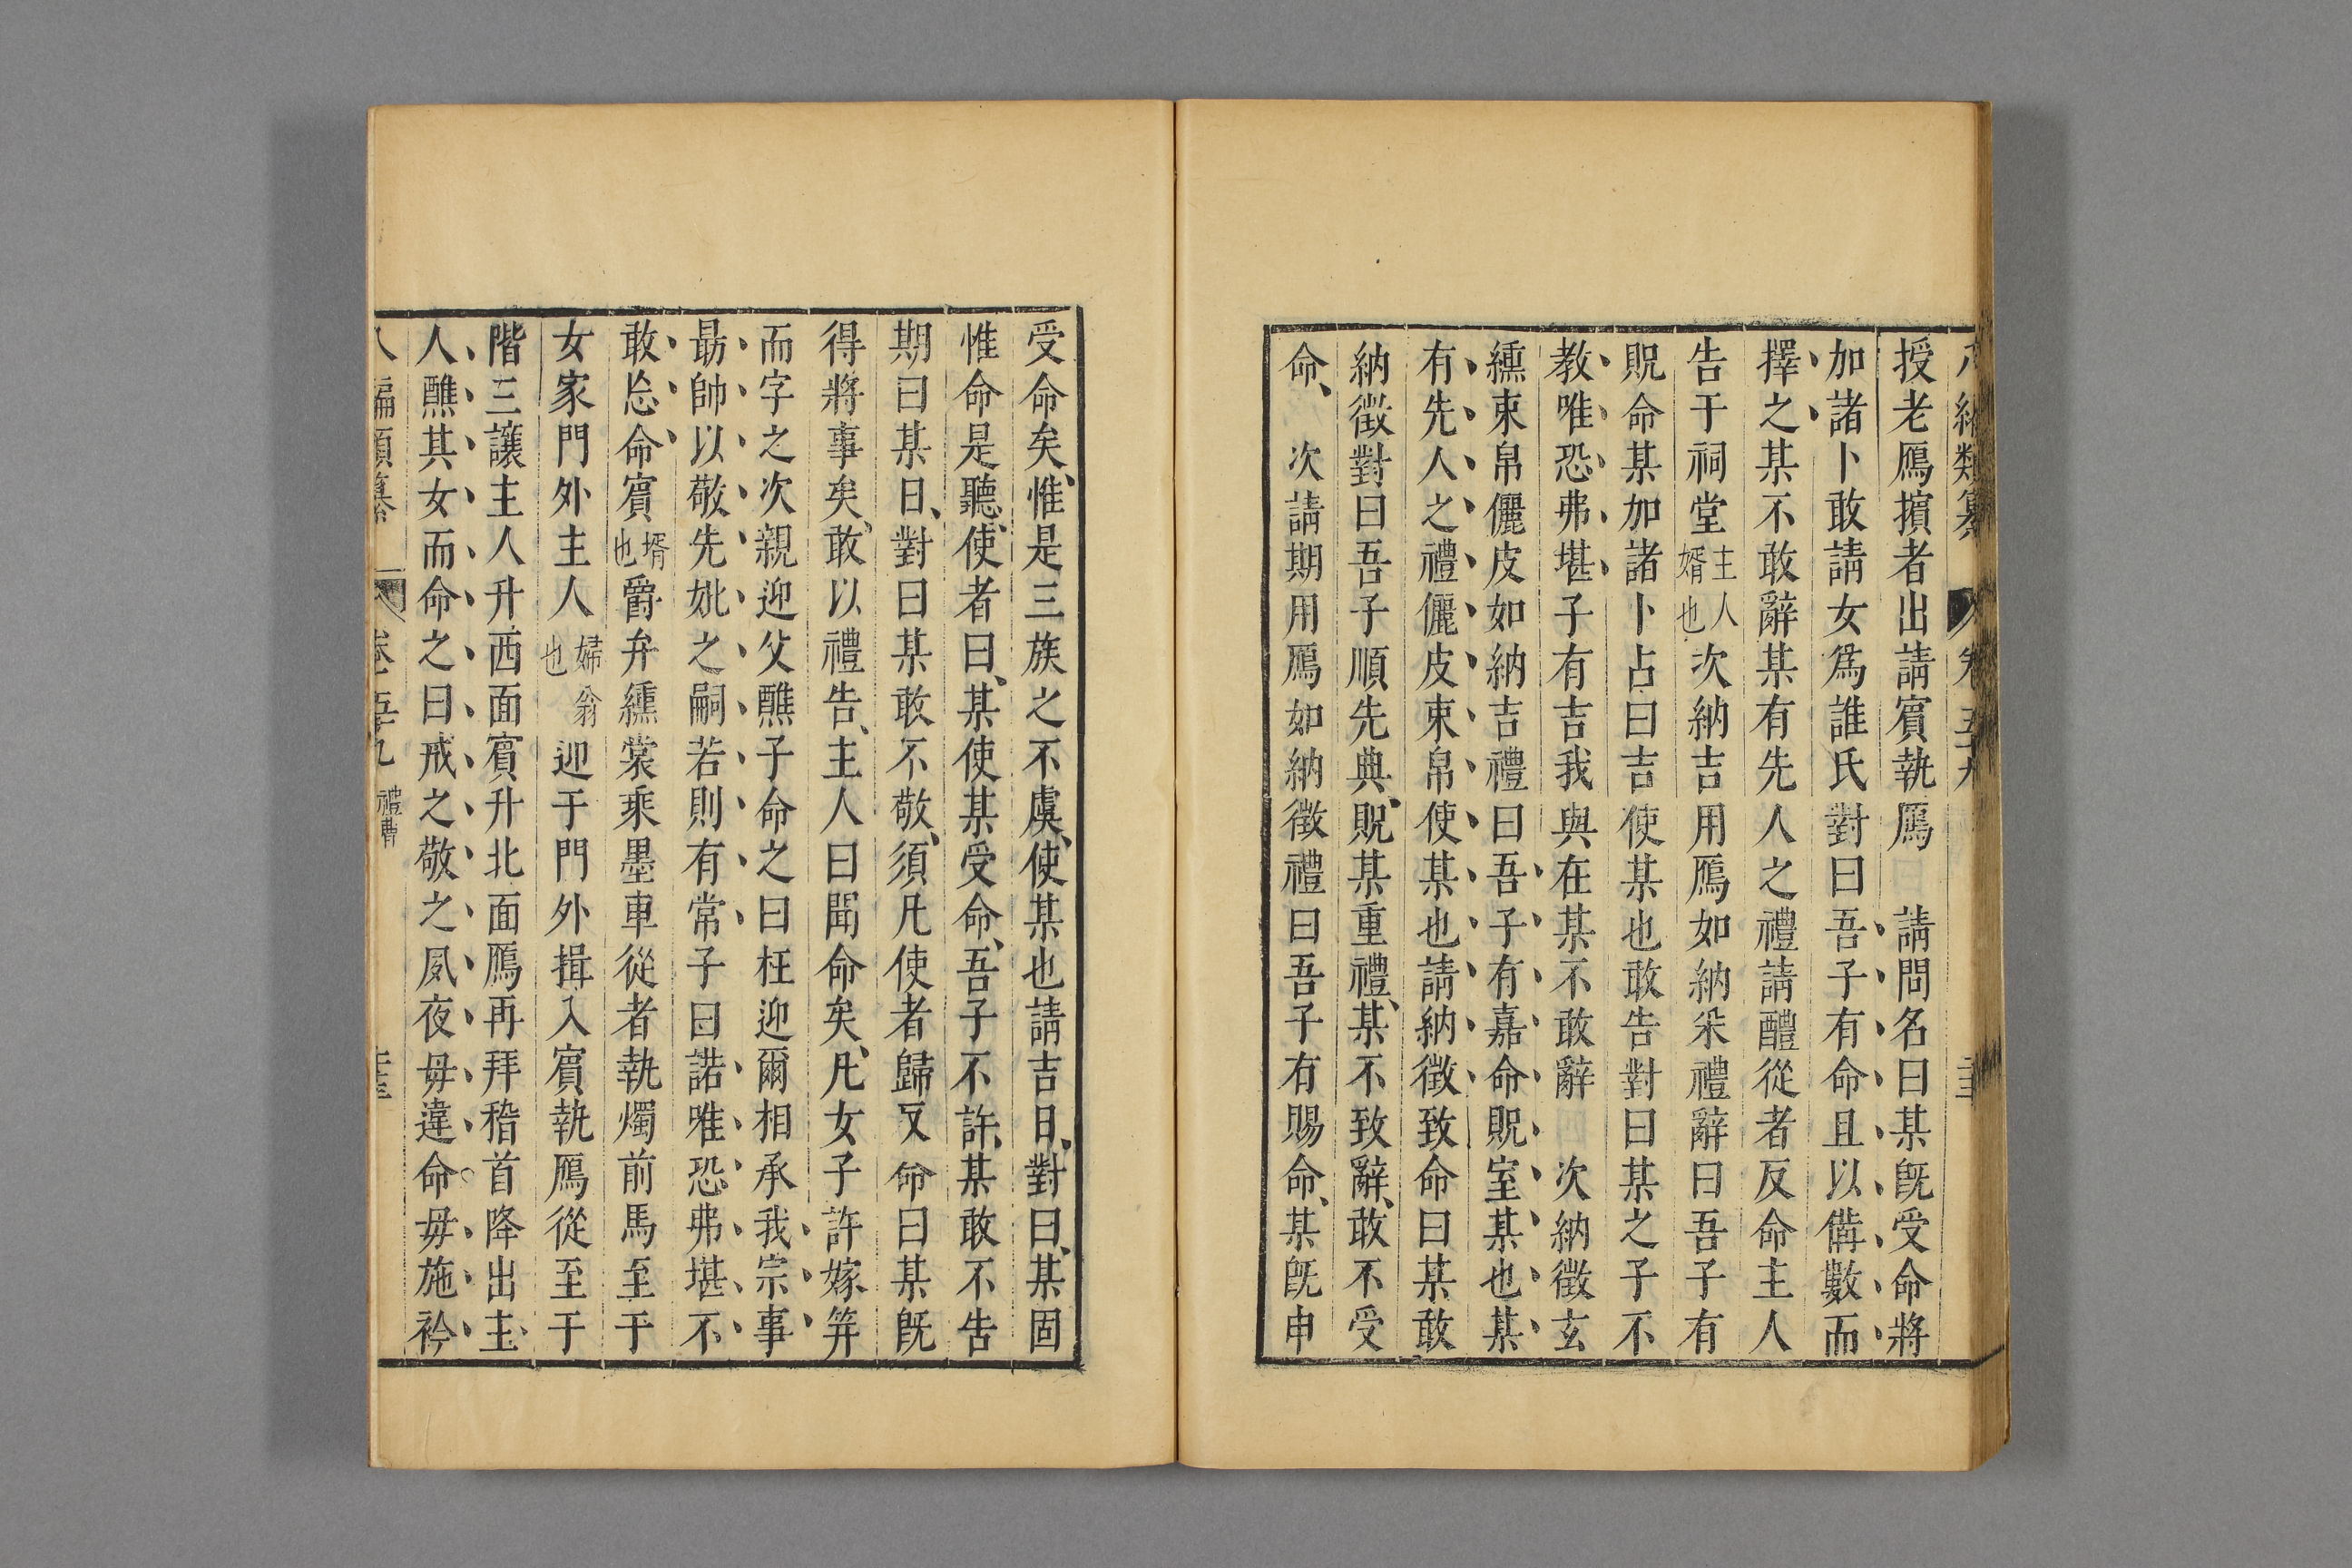 八編類纂 卷五十九
授老鴈擯者出請賓執鴈 請問名曰某旣受命將
加諸卜敢請女爲誰氏對曰吾子有命且以備數而
擇之某不敢辭某有先人之禮請醴從者反命主人
告于祠堂主人婿也次納吉用鴈如納采禮辭曰吾子有
貺命某加諸卜占曰吉使某也敢告對曰某之子不
教唯恐弗堪子有吉我與在某不敢辭 次納徵玄
纁束帛儷皮如納吉禮曰吾子有嘉命貺室某也某
有先人之禮儷皮束帛使某也請納徵致命曰某敢
納徵對曰吾子順先典貺某重禮某不致辭敢不受
命 次請期用鴈如納徵禮曰吾子有賜命某旣申
受命矣惟是三族之不虞使某也請吉日對曰某固
惟命是聽使者曰某使某受命吾子不許某敢不告
期曰某日對曰某敢不敬須凡使者歸反命曰某旣
得將事矣敢以禮告主人曰聞命矣凡女子許嫁笄
而字之次親迎父醮子命之曰枉迎爾相承我宗事
勗帥以敬先妣之嗣若則有常子曰諾唯恐弗堪不
敢忘命賓壻也爵弁纁裳乘墨車從者執燭前馬至于
女家門外主人婦翁也迎于門外揖入賓執鴈從至于
階三讓主人升西面賓升北面鴈再拜稽首降出主
人醮其女而命之曰戒之敬之夙夜毋違命毋施衿
八編類纂 卷五十九 禮曹